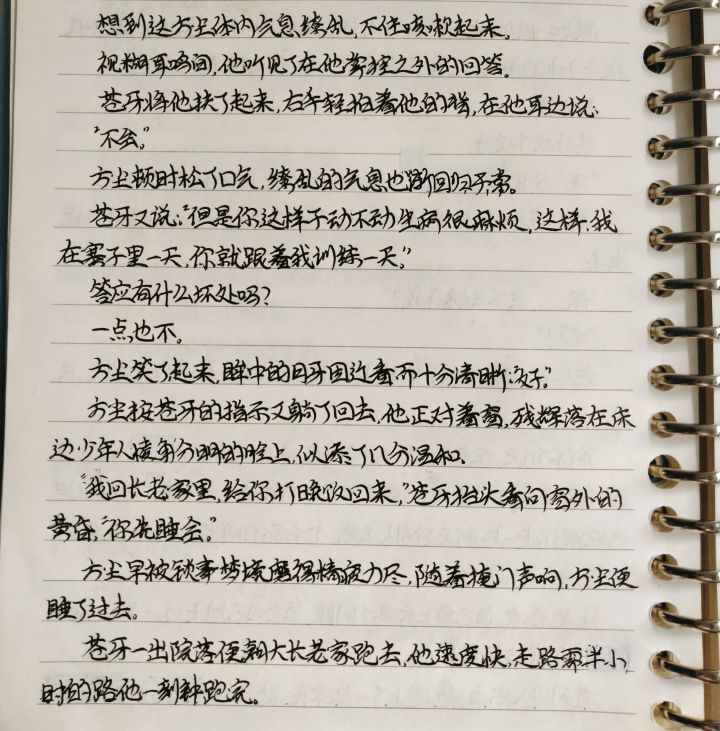 想到这方尘体内气息缭乱,不住咳嗽起来。
视糊耳鸣间,他听见了在他掌控之外的回答。
苍牙将他扶了起来,右手轻拍着他的背,在他耳边说:
“不会。”
方尘顿时松了口气,缭乱的气息也渐回归平常。
苍牙又说:“但是你这样子动不动生病很麻烦,这样,我
在寨子里一天,你就跟着我训练一天。”
答应有什么坏处吗?
一点也不。
方尘笑了起来,眸中的月牙因近看而十分清晰:“好。”
方尘按苍牙的指示又躺了回去,他正对着窗,残辉落在床
边少年人棱角分明的脸上,似添了几分温和。
“我回长老家里,给你打晚饭回来,”苍牙抬头看向窗外的
黄昏,“你先睡会。”
方尘早被琐事梦境磨得精疲力尽,随着掩门声响,方尘便
睡了过去。
苍牙一出院落便朝大长老家跑去,他速度快,走路需半小
时的路他一刻钟跑完。